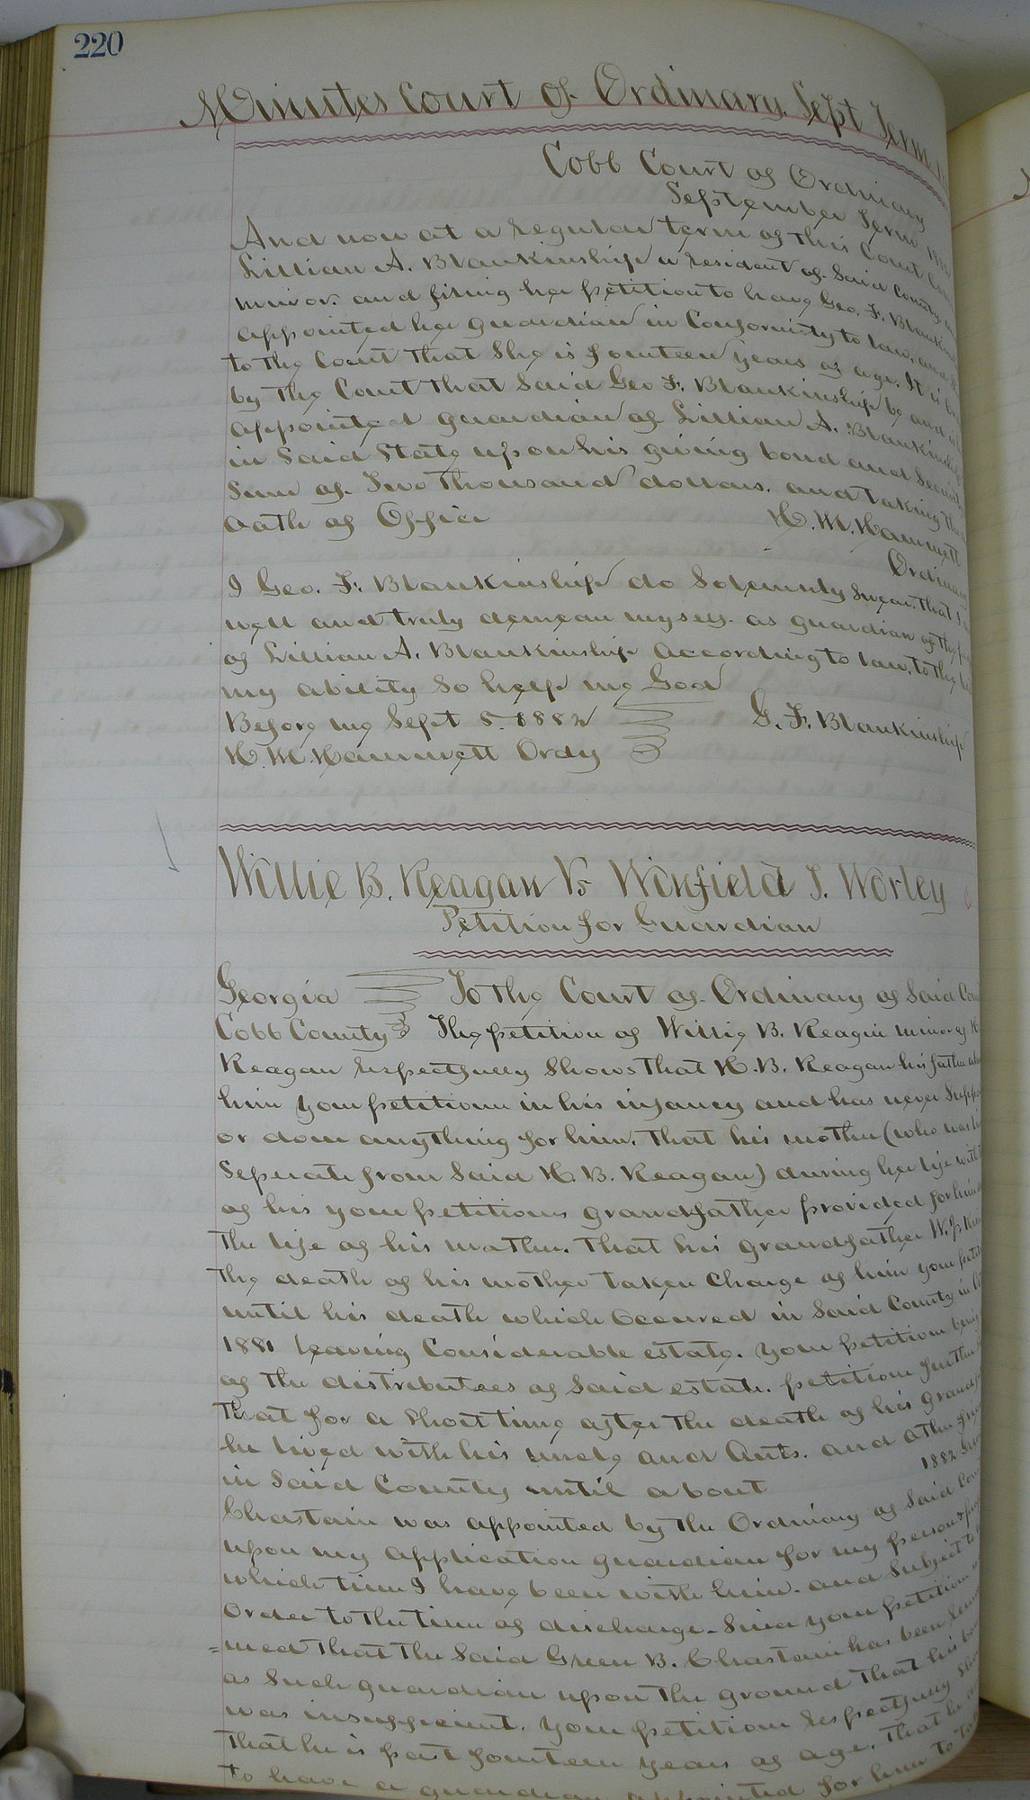 220
Minutes Court of Ordinary Sept Term
Cobb Court of Ordinary
September Term
And now at a regular term of this Court
Lillian A. Blankinship a resident of Said County
minor and filing her petition to have Geo. F.
appointed her guardian in Conformity to law, and
to the Court that She is fourteen years of age. It is
by the Court that Said Geo F. Blankinship be and
appointed guardian of Lillian A. Blankinship
in Said State upon his giving bond and Security
Sum of Two Thousand dollars. and taking the
Oath of Office
H. M. Hammett
Ordinary
I Geo. F. Blankinship do Solemnly Swear, that I
well and truly demean myself as guardian of the
of Lillian A. Blankinship According to law, to the
my ability So help me God
Before me Sept 5 1882 G. F. Blankinship
H. M. Hammett Ordy
Willie B. Reagan Vs Winfield J. Worley
Petition for Guardian
Georgia To the Court of Ordinary of Said
Cobb County The petition of Willie B. Reagin minor of
Reagan respectfully Shows That H. B. Reagan his father
him your petitioner in his infancy and has never
or done anything for him. That his mother (who was
Seperate from Said H. B. Reagan) during her life with
of his your petitions grandfather provided for him
the life of his mother. That his grandfather W. P.
the death of his mother taken Charge of him your
until his death which Occurred in Said County in
1881 leaving Considerable estate. Your petition being
of the distributees of Said estate. petition further
That for a Short time after the death of his
he lived with his uncle and Ants. and
in Said County until about 1882
Chastain was appointed by the Ordinary of Said
upon my application guardian for my person &
which time I have been with him. and Subject to
Order to the time of discharge. Said your petition
=med That the Said Green B. Chastain has been
as Such guardian upon the ground that his
was insufficient. Your petition respectfully
That he is past fourteen years of age. That he
to have a guardian appointed for him to